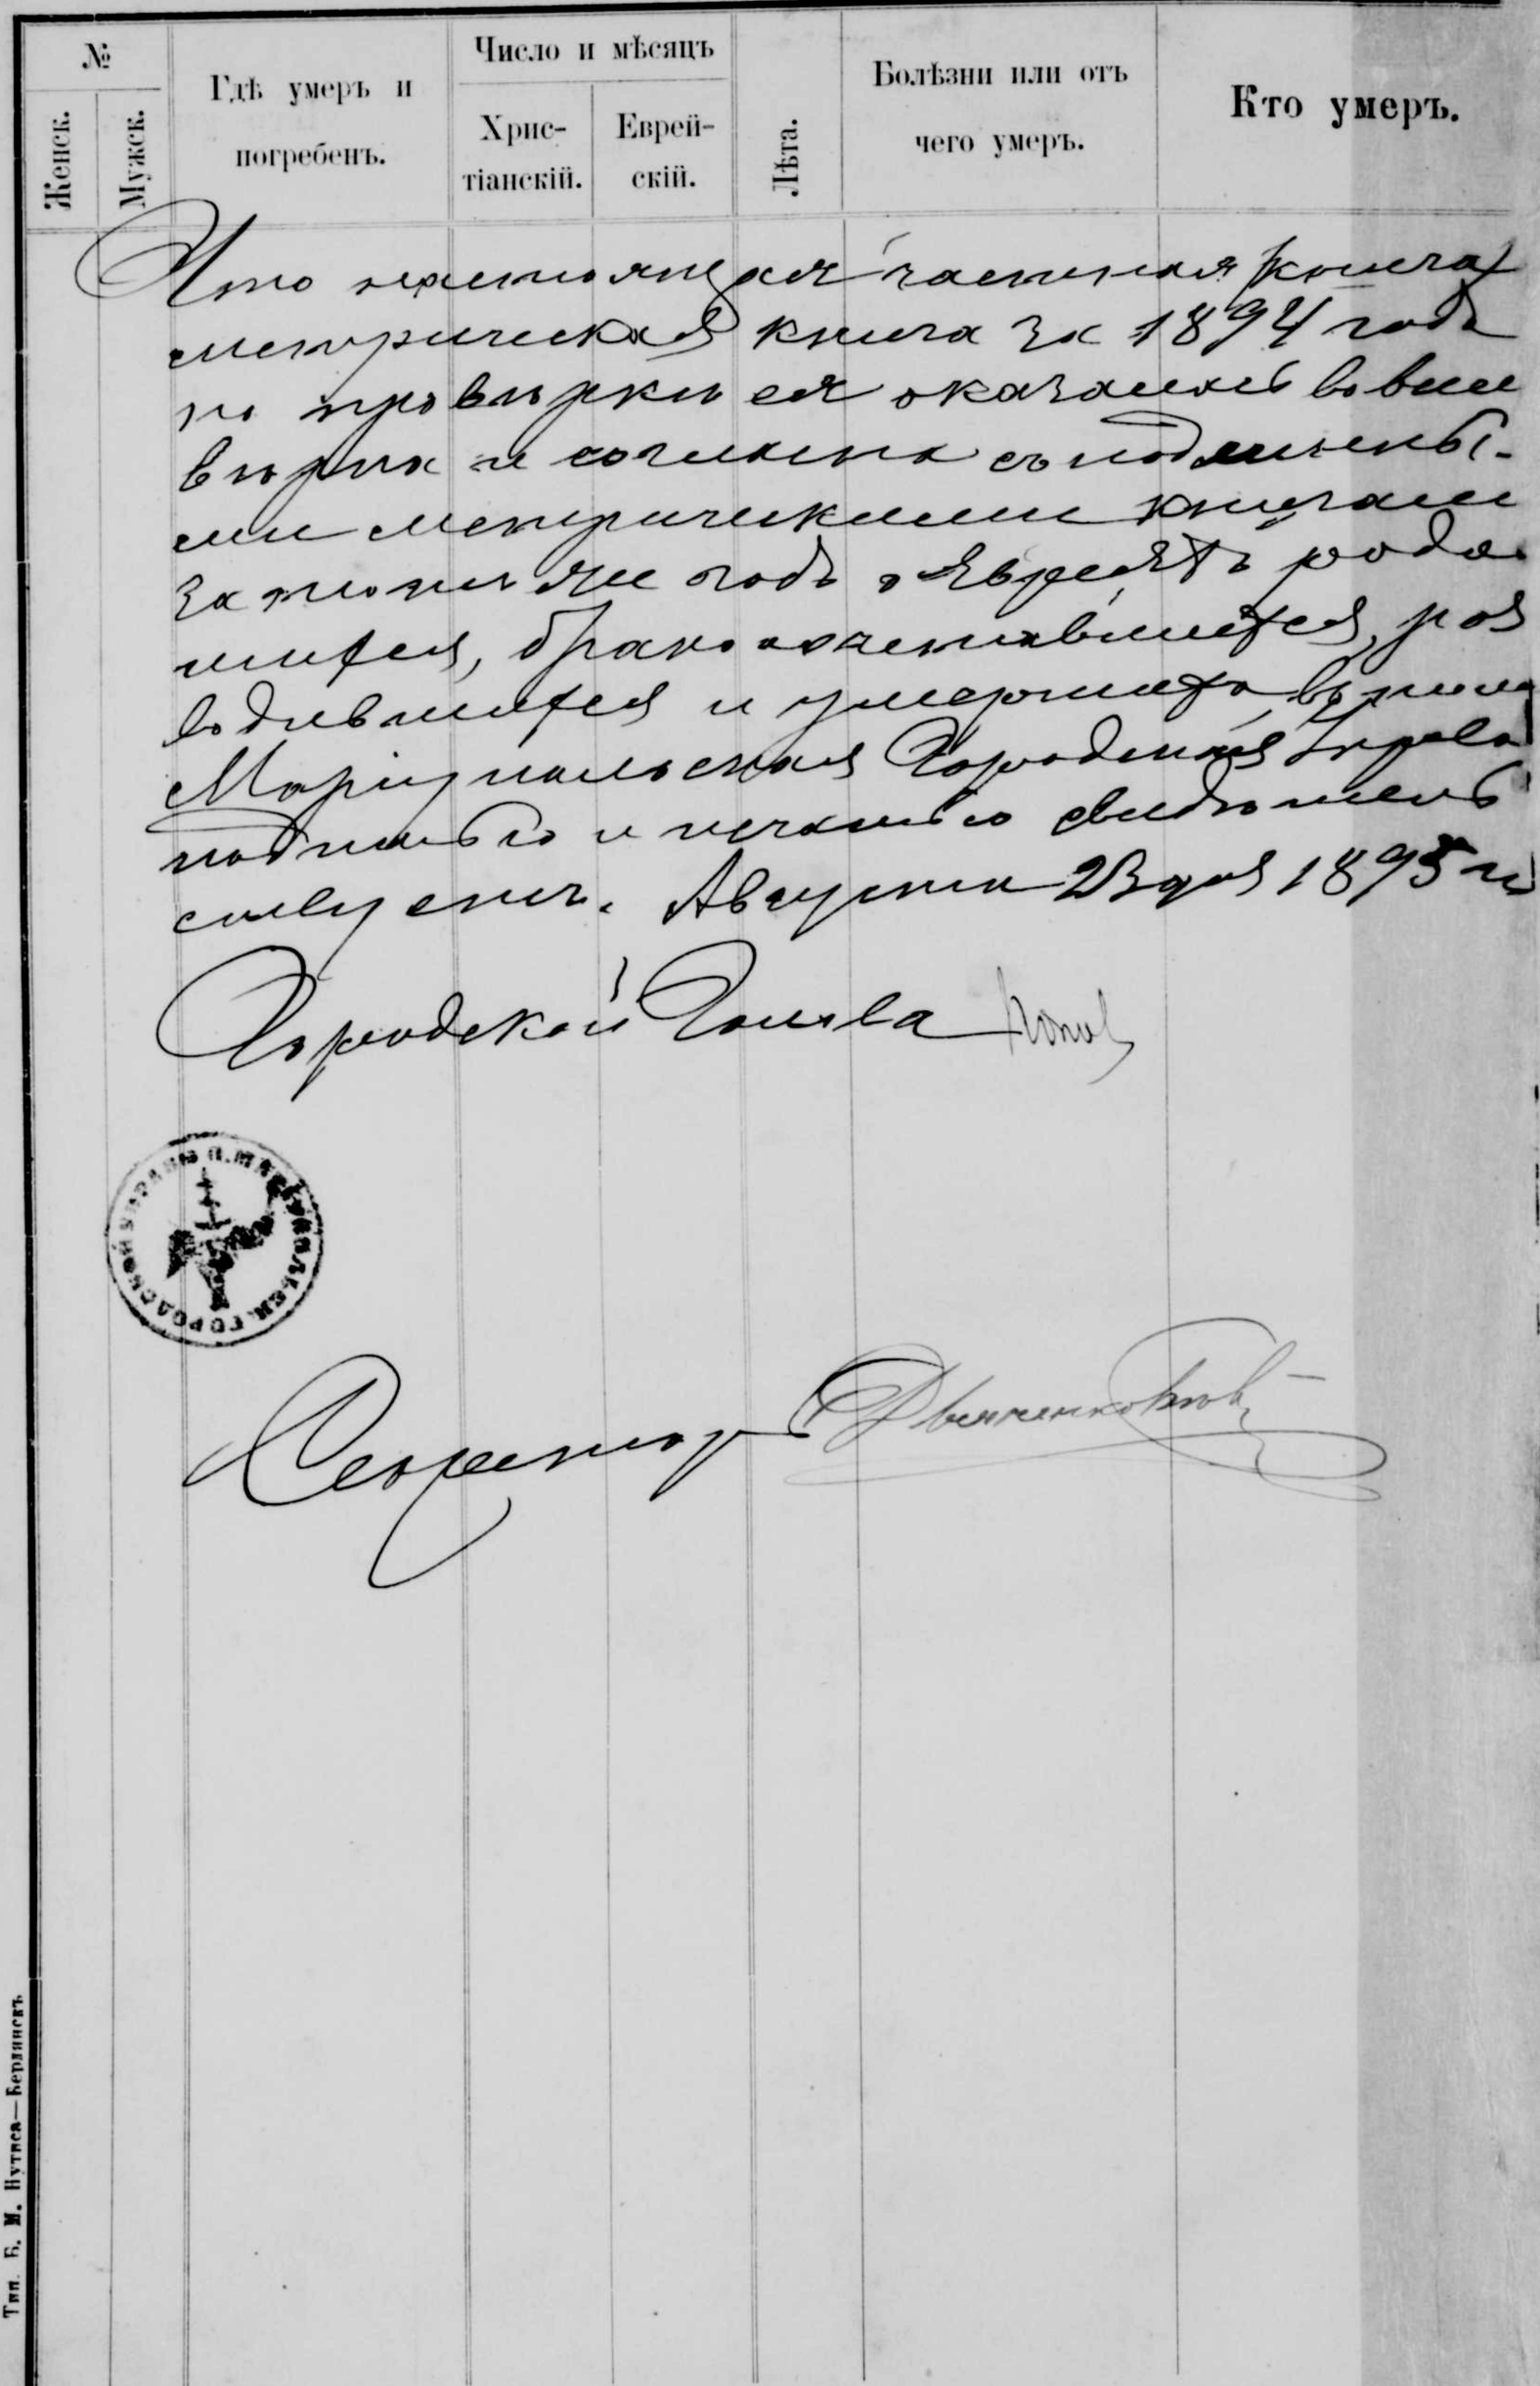 №
Женск.
Мужск.
Гдѣ умеръ и
погребенъ.
Число и мѣсяцъ
Хрис-
тіанскій.
Еврей-
скій.
Лѣта.
Болѣзни или отъ
чего умеръ.
Кто умеръ.
Что настоящая частная книга
метрическая книга за 1894 годъ
по провѣркѣ ея оказалась во всемъ
вѣрна и согласна съ подлинны-
ми метрическими книгами
за тотъ же годъ о Евреяхъ родив
шихся, бракосочетавшихся, раз
водившихся и умершихъ, въ томъ
Маріупольская Городская Управа
подписью и печатью свидѣтель
ствуетъ. Августа 23 дня 1895 г.
Городской Голова Попов
ГОРОДСКОЙ УПРАВЫ П. МАРІУПОЛЬСК.
Секретарь
Тип. Б. М. Нутиса—Бердянскъ